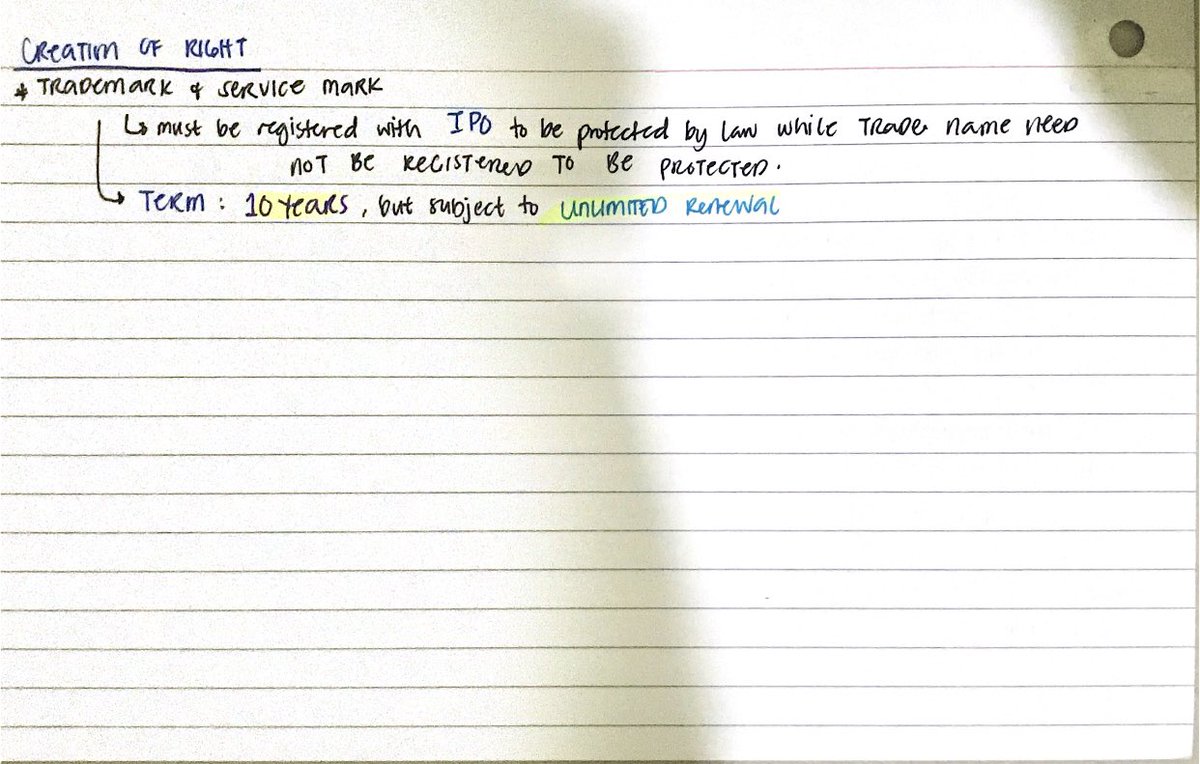 CREATION OF RIGHT
* TRADEMARK & SERVICE MARK
↳ must be registered with IPO to be protected by law while TRADE name NEED
NOT BE REGISTERED TO BE PROTECTED.
→ TERM : 10 years, but subject to UNLIMITED Renewal